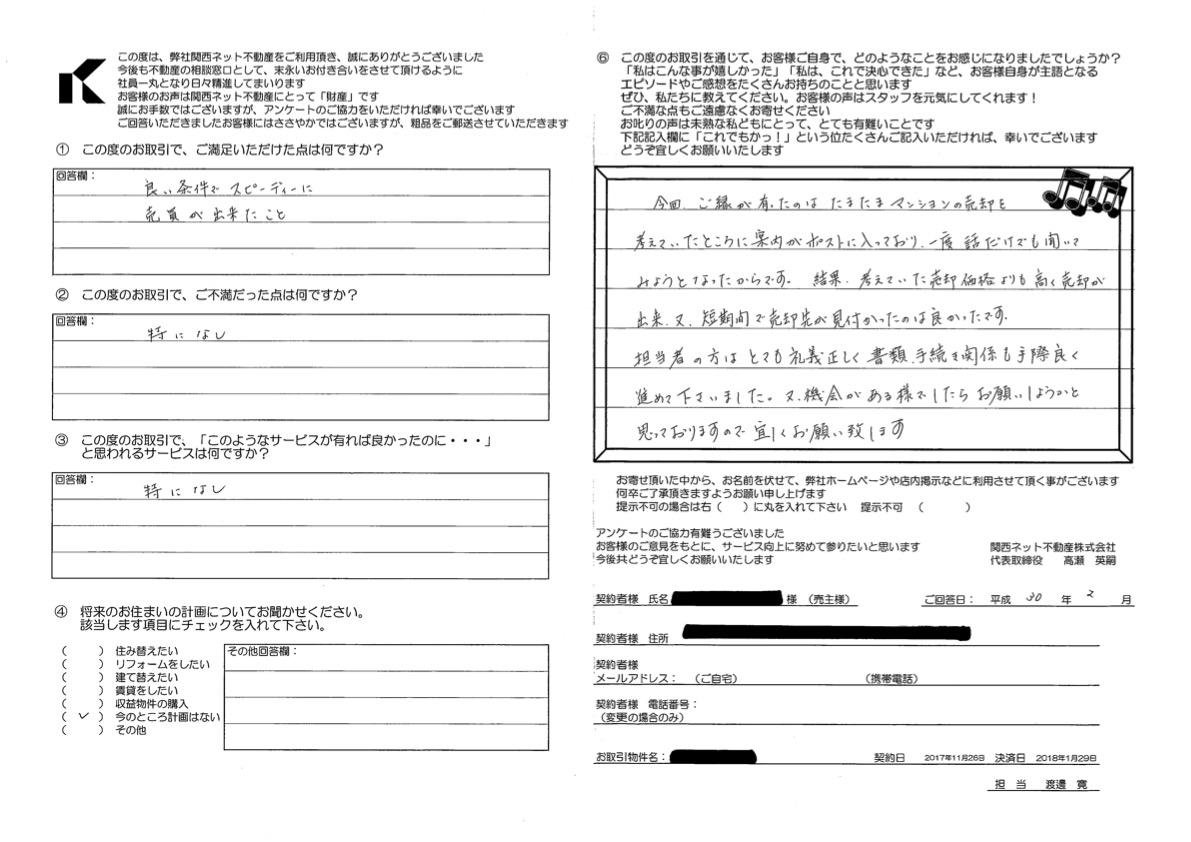 この度は、弊社関西ネット不動産をご利用頂き、誠にありがとうございました
今後も不動産の相談窓口として、末永いお付き合いをさせて頂けるように
社員一丸となり日々精進してまいります
お客様のお声は関西ネット不動産にとって「財産」です
誠にお手数ではございますが、アンケートのご協力をいただければ幸いでございます
ご回答いただきましたお客様にはささやかではございますが、粗品をご郵送させていただきます
① この度のお取引で、ご満足いただけた点は何ですか？
回答欄：
良い条件で スピーディーに
売買が出来たこと
② この度のお取引で、ご不満だった点は何ですか？
回答欄：
特に なし
③ この度のお取引で、「このようなサービスが有れば良かったのに・・・」
と思われるサービスは何ですか？
回答欄：
特に なし
④ 将来のお住まいの計画についてお聞かせください。
該当します項目にチェックを入れて下さい。
（　　）住み替えたい
（　　）リフォームをしたい
（　　）建て替えたい
（　　）賃貸をしたい
（　　）収益物件の購入
（ ✓ ）今のところ計画はない
（　　）その他
その他回答欄：
⑥ この度のお取引を通じて、お客様ご自身で、どのようなことをお感じになりましたでしょうか？
「私はこんな事が嬉しかった」「私は、これで決心できた」など、お客様自身が主語となる
エピソードやご感想をたくさんお持ちのことと思います
ぜひ、私たちに教えてください。お客様の声はスタッフを元気にしてくれます！
ご不満な点もご遠慮なくお寄せください
お叱りの声は未熟な私どもにとって、とても有難いことです
下記記入欄に「これでもかっ！」という位たくさんご記入いただければ、幸いでございます
どうぞ宜しくお願いいたします
今回、ご縁が有ったのは たまたま マンションの売却を
考えていたところに案内がポストに入っており、一度 話だけでも聞いて
みようとなったからです。 結果、考えていた売却価格よりも高く売却が
出来、又、短期間で売却先が見付かったのは良かったです。
担当者の方は とても 礼義正しく 書類、手続き関係も手際良く
進めて下さいました。又、機会がある様でしたら お願いしようかと
思っておりますので 宜しくお願い致します
お寄せ頂いた中から、お名前を伏せて、弊社ホームページや店内掲示などに利用させて頂く事がございます
何卒ご了承頂きますようお願い申し上げます
提示不可の場合は右（　　）に丸を入れて下さい　提示不可　（　　　　）
アンケートのご協力有難うございました
お客様のご意見をもとに、サービス向上に努めて参りたいと思います
今後共どうぞ宜しくお願いいたします
関西ネット不動産株式会社
代表取締役　高瀬　英嗣
契約者様 氏名　様　（売主様）　ご回答日：　平成 30 年 2 月
契約者様 住所
契約者様
メールアドレス：　（ご自宅）　（携帯電話）
契約者様 電話番号：
（変更の場合のみ）
お取引物件名：　契約日　2017年11月26日　決済日　2018年1月29日
担 当　渡邊 寛